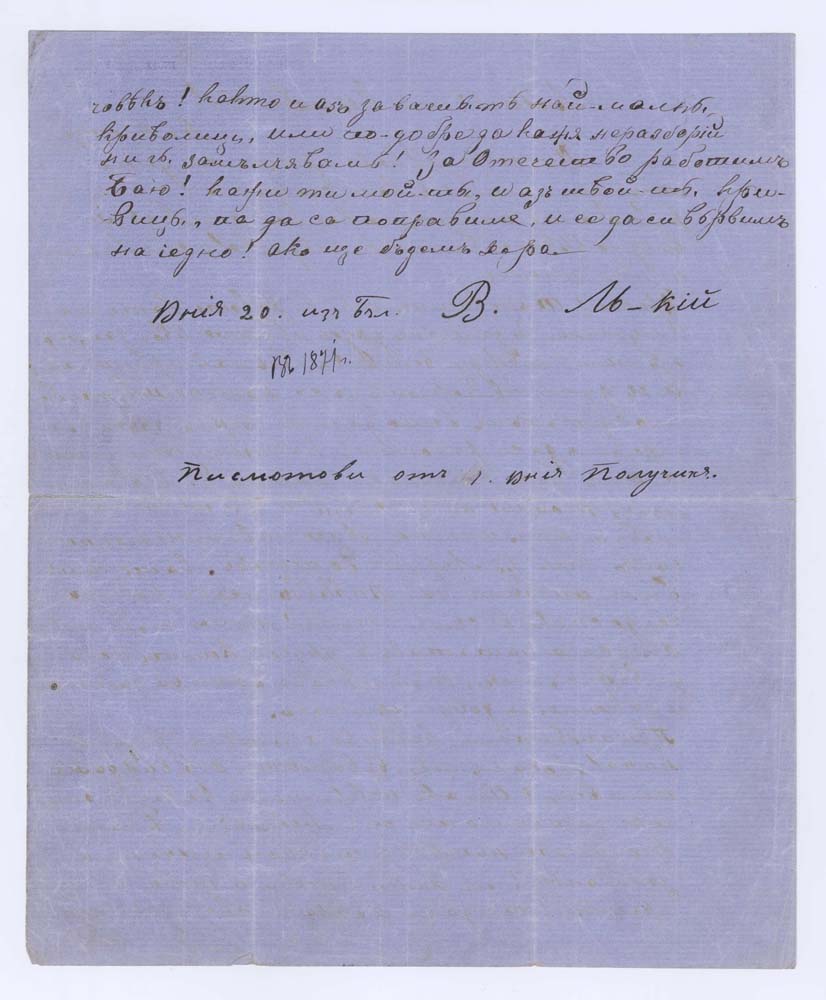 човѣкъ! както и азъ за васъ и въ най-малкъ
криволици, или по-добре да кажя неразборій
ни гѫ замълчявамъ! За Отечество работимъ
Баю! кажи ти мой-тѣ, и азъ твой-тѣ кри-
вицы, па да са поправиме, и се да си вървимъ
на іедно! ако ще бѫдемъ хора.
Днія 20. изъ Бъл. В. Ль-кій
въ 1871 г.
Писмотови отъ 1. днія Получихя.